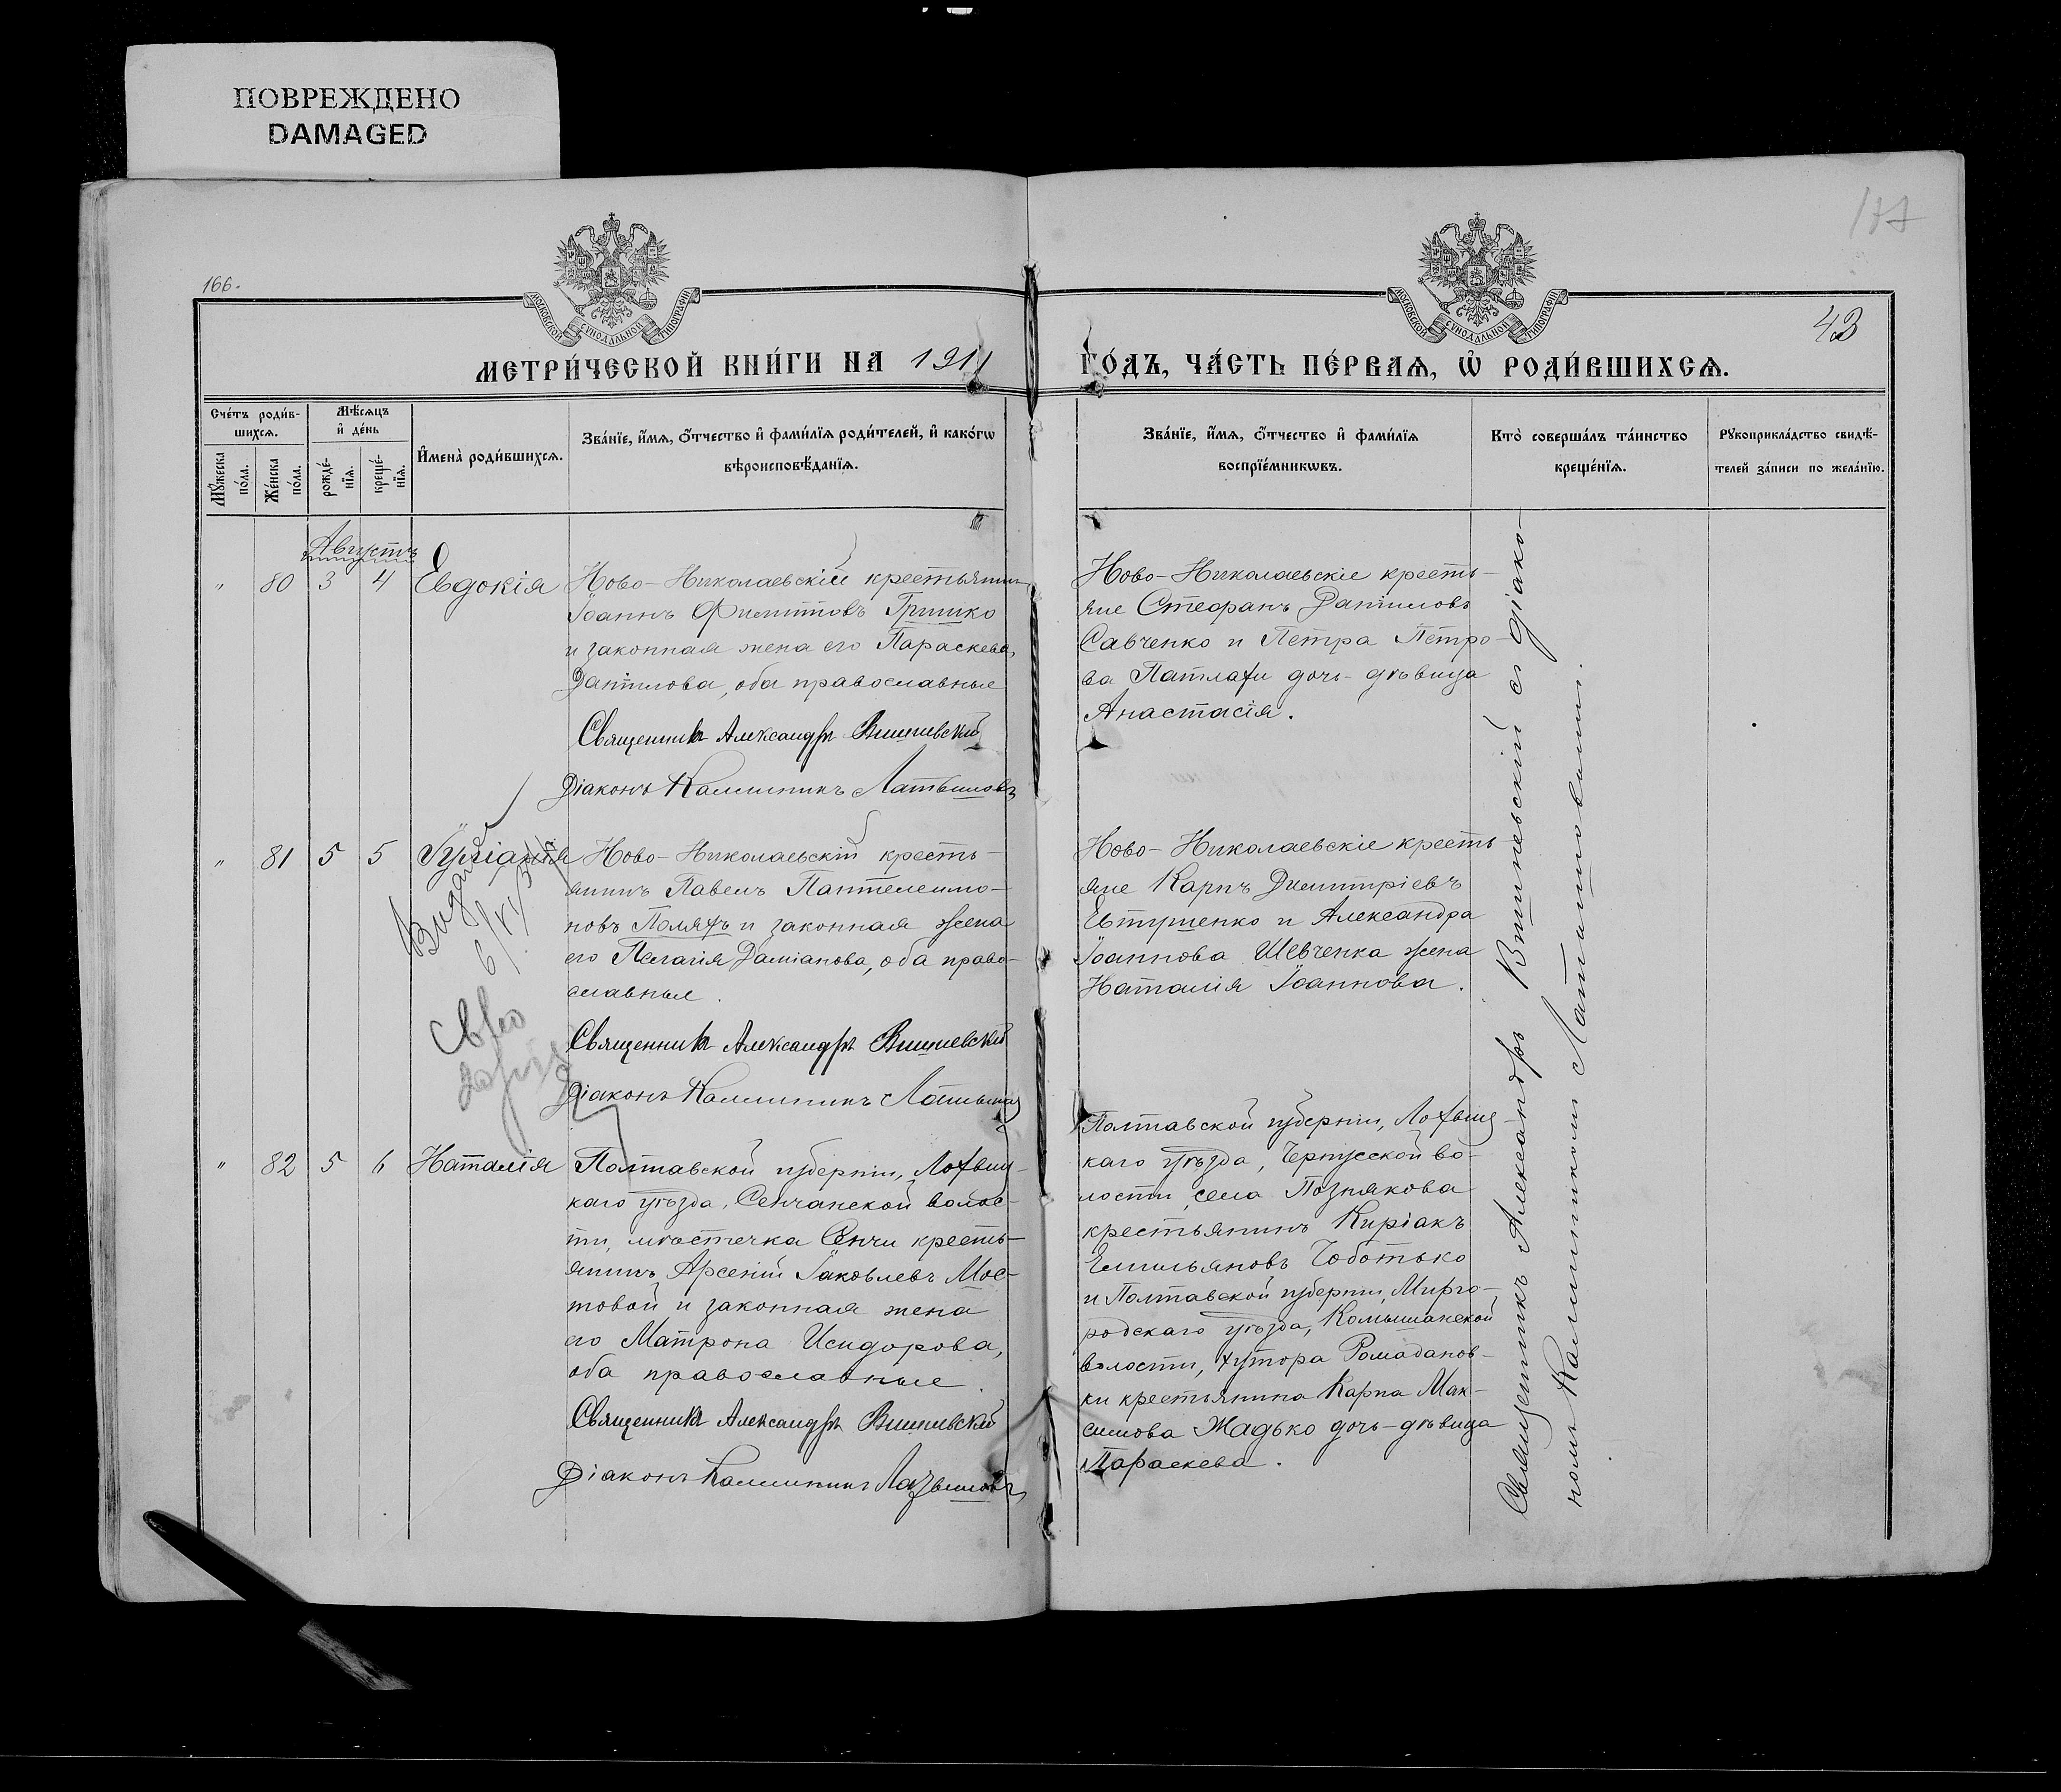 ПОВРЕЖДЕНО
DAMAGED
166.
43
МОСКОВСКОЙ СѴНОДАЛЬНОЙ ТИПОГРАФІИ
МОСКОВСКОЙ СѴНОДАЛЬНОЙ ТИПОГРАФІИ
МЕТРИ́ЧЕСКОЙ КНИ́ГИ НА 1911
ГО́ДЪ, ЧА́СТЬ ПЕ́РВАѦ, Ѡ҆ РОДИ́ВШИХСѦ.
Сче́тъ роди́в-
шихсѧ.
Мꙋ́жеска по́ла.
Же́нска по́ла.
Мѣ́сѧцъ
и҆ де́нь
рожде́-
нїѧ.
креще́-
нїѧ.
И҆мена̀ роди́вшихсѧ.
Зва́нїе, и҆́мѧ, ѻ҆́тчество и҆ фами́лїѧ роди́телей, и҆ како́гѡ
вѣроисповѣ́данїѧ.
Зва́нїе, и҆́мѧ, ѻ҆́тчество и҆ фами́лїѧ
воспрїе́мникѡвъ.
Кто̀ соверша́лъ та́инство
креще́нїѧ.
Рꙋкоприкла́дство свидѣ́-
телей за́писи по жела́нїю.
Августъ
" 80 3 4 Евдокія
Ново-Николаевскій крестьянинъ
Іоаннъ Филипповъ Гришко
и законная жена его Параскева
Даніилова, оба православные
Священникъ Александръ Вишневскій
Діаконъ Каллиникъ Латышовъ
Ново-Николаевскіе кресть-
яне Стефанъ Даніиловъ
Савченко и Петра Петро-
ва Патлахи дочь-дѣвица
Анастасія.
" 81 5 5 Іуліанія
Видано
Ново-Николаевскій кресть-
янинъ Павелъ Пантелеимо-
новъ Поляхъ и законная жена
его Пелагія Даміанова, оба право-
славные.
Священникъ Александръ Вишневскій
Діаконъ Каллиникъ Латышовъ
Ново-Николаевскіе кресть-
яне Карпъ Димитріевъ
Евтушенко и Александра
Іоаннова Шевченка жена
Наталія Іоаннова.
" 82 5 6 Наталія
Полтавской губерніи, Лохвиц-
каго уѣзда, Сенчанской волос-
ти, мѣстечка Сенчи кресть-
янинъ Арсеній Іаковлевъ Мос-
товой и законная жена
его Матрона Исидорова,
оба православные.
Священникъ Александръ Вишневскій
Діаконъ Каллиникъ Латышовъ
Полтавской губерніи, Лохвиц-
каго уѣзда, Чернусской во-
лости, села Познякова
крестьянинъ Киріакъ
Емильяновъ Чоботько
и Полтавской губерніи, Мирго-
родскаго уѣзда, Комышанской
волости, хутора Ромаданов-
ки крестьянина Карпа Мак-
симова Жадько дочь-дѣвица
Параскева.
Священникъ Александръ Вишневскій съ діако-
номъ Каллиникомъ Латышовымъ.